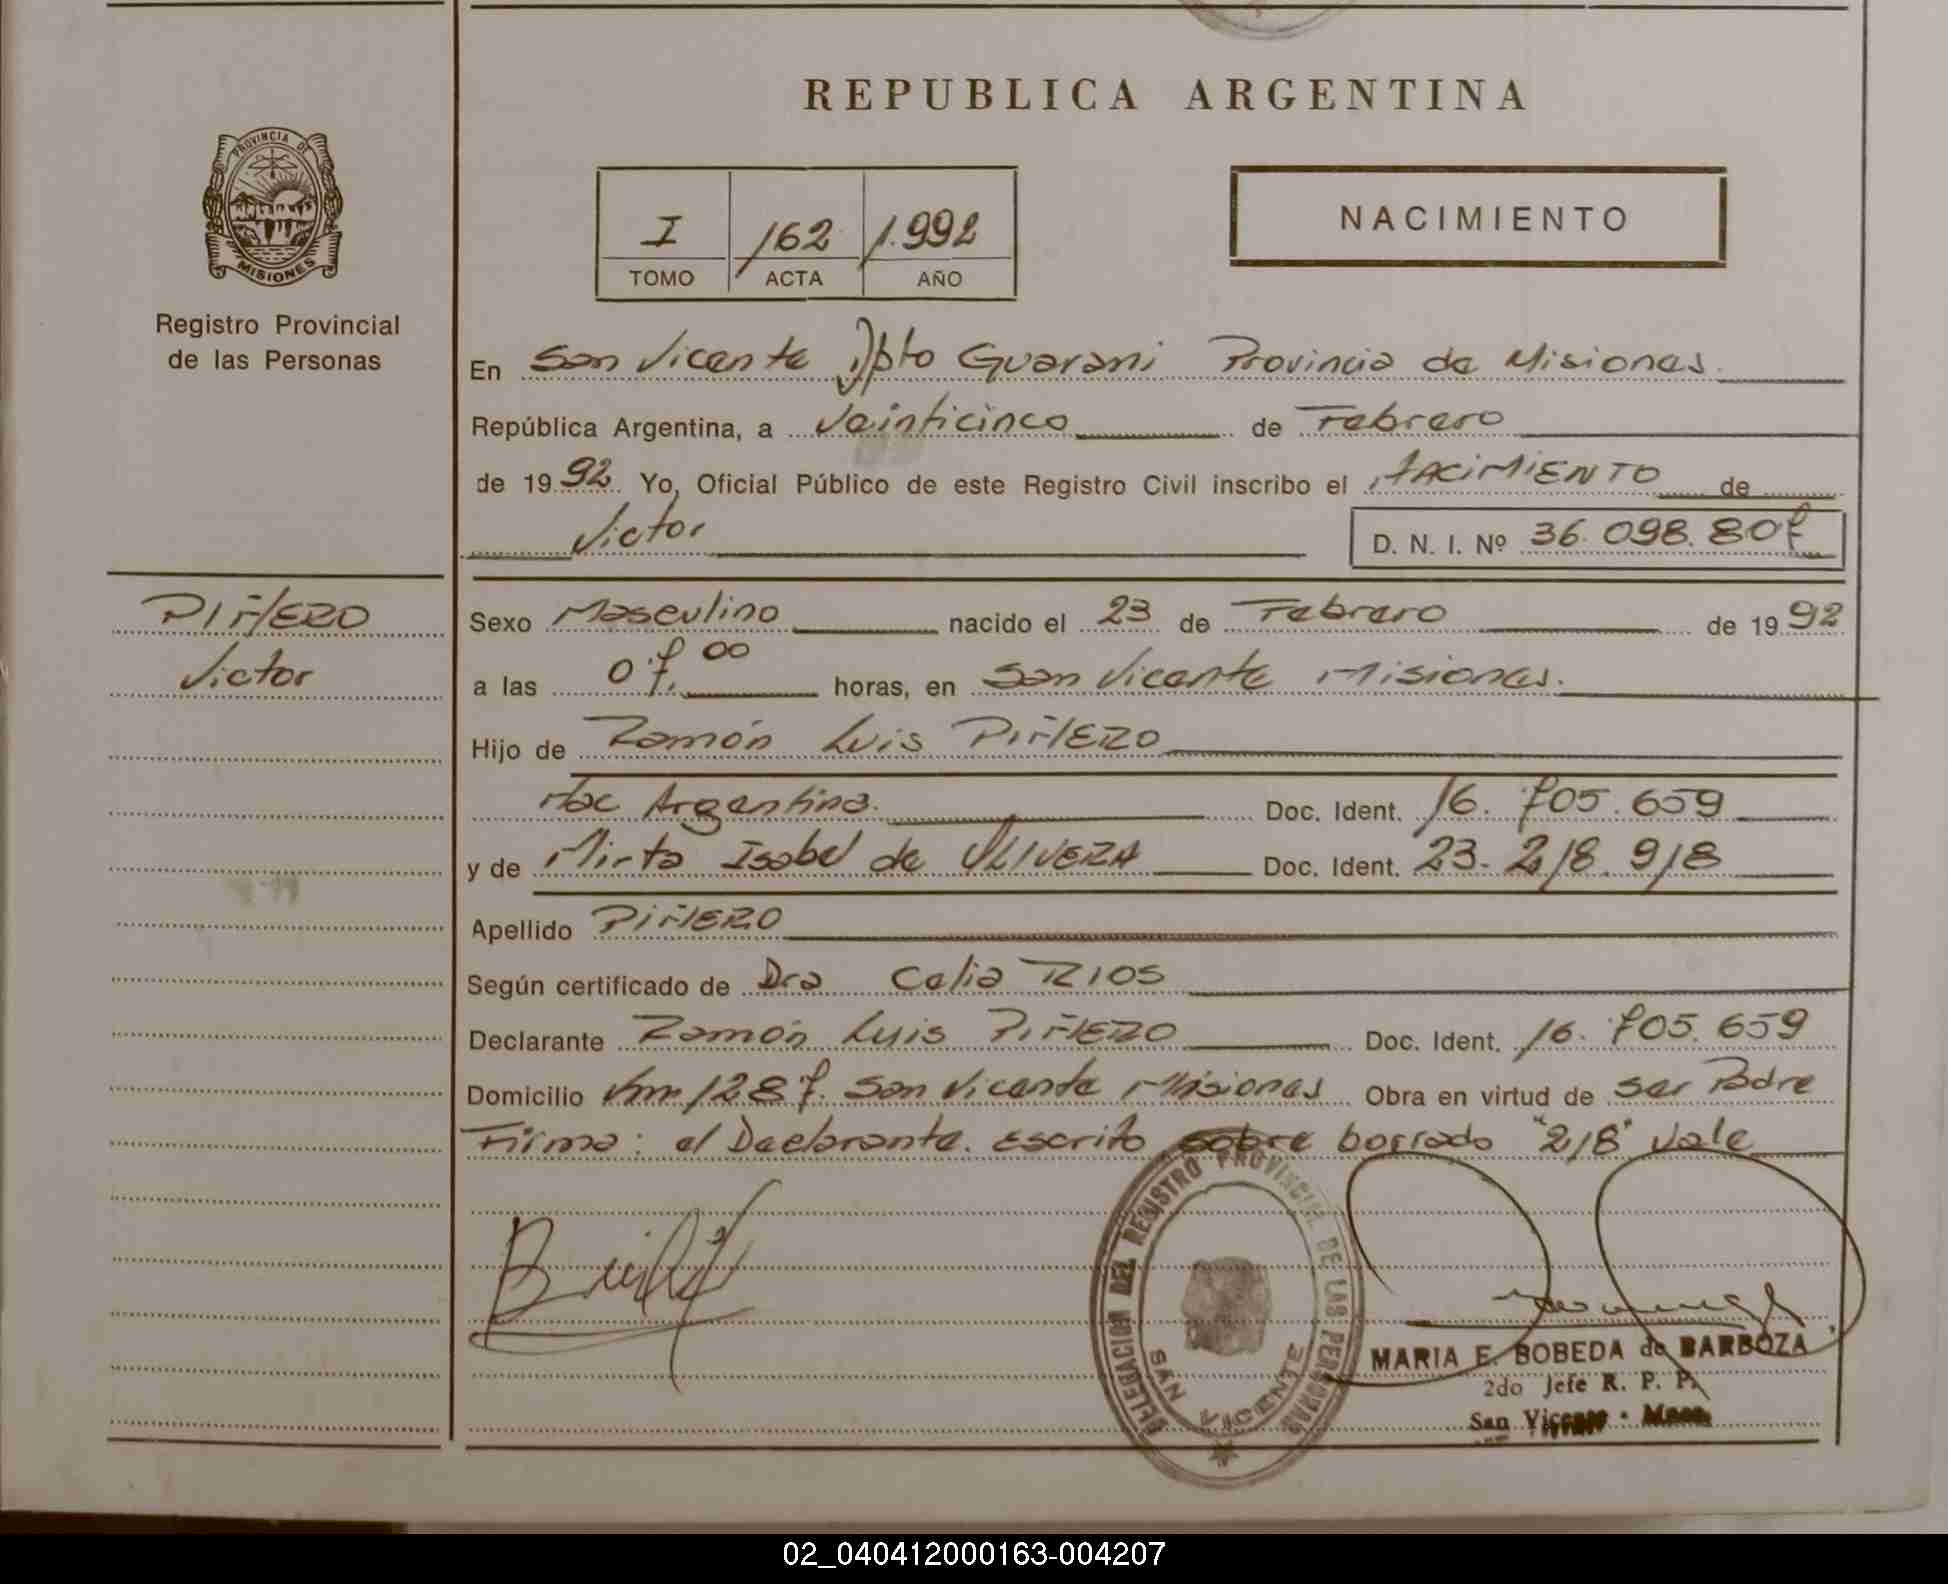 REPUBLICA ARGENTINA
PROVINCIA DE
MISIONES
Registro Provincial
de las Personas
I 162 1.992
TOMO ACTA AÑO
NACIMIENTO
En San Vicente Dpto Guarani Provincia de Misiones.
República Argentina, a Veinticinco de Febrero
de 1992. Yo, Oficial Público de este Registro Civil inscribo el NACIMIENTO de
Victor D. N. I. Nº 36.098.807
PIÑERO
Victor
Sexo Masculino nacido el 23 de Febrero de 1992
a las 07.00 horas, en San Vicente Misiones.
Hijo de Ramón Luis PIÑERO
Nac Argentina. Doc. Ident. 16.705.659
y de Mirta Isabel de OLIVERA Doc. Ident. 23.218.918
Apellido PIÑERO
Según certificado de Dra Celia RIOS
Declarante Ramón Luis PIÑERO Doc. Ident. 16.705.659
Domicilio Km 1287. San Vicente Misiones Obra en virtud de ser Padre
Firma: el Declarante. Escrito sobre borrado "218" Vale
DELEGACION DEL REGISTRO PROVINCIAL DE LAS PERSONAS
SAN VICENTE
MARIA E. BOBEDA de BARBOZA
2do Jefe R. P. P.
San Vicente - Mnes.
02_040412000163-004207